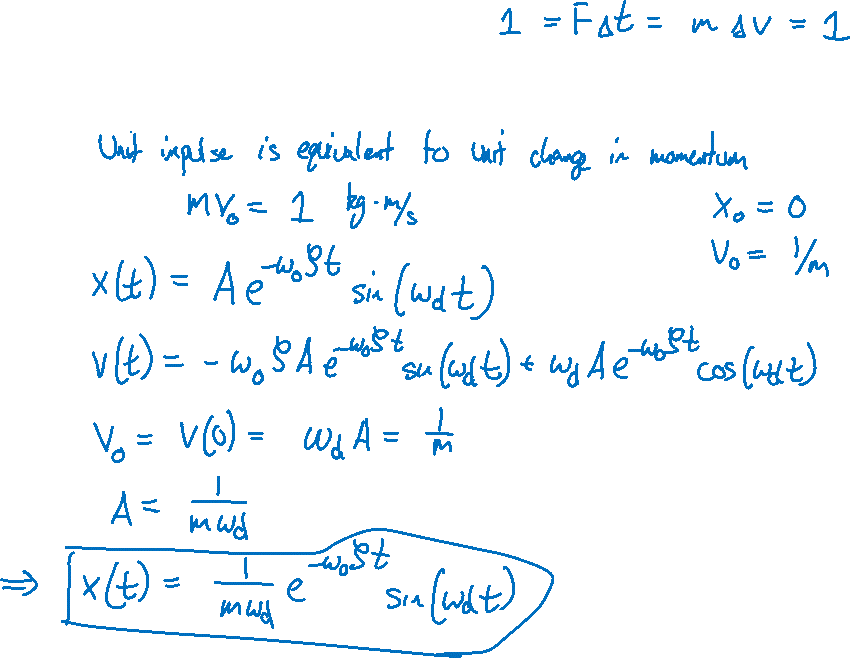 1 = FΔt = m Δv = 1
Unit impulse is equivalent to unit change in momentum
mV₀ = 1 kg·m/s
x₀ = 0
V₀ = 1/m
x(t) = A e^(-ω₀ζt) sin(ω_d t)
v(t) = -ω₀ζA e^(-ω₀ζt) sin(ω_d t) + ω_d A e^(-ω₀ζt) cos(ω_d t)
V₀ = V(0) = ω_d A = 1/m
A = 1/(mω_d)
⇒ x(t) = 1/(mω_d) e^(-ω₀ζt) sin(ω_d t)